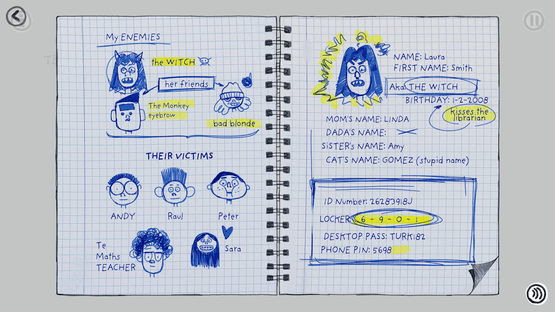 My ENEMIES
the WITCH
her friends
The Monkey
eyebrow
bad blonde
THEIR VICTIMS
ANDY
Raul
Peter
Te
Maths
TEACHER
Sara
NAME: Laura
FIRST NAME: Smith
Aka THE WITCH
BIRTHDAY: 1-2-2008
Kisses the
librarian
MOM'S NAME: LINDA
DADA'S NAME:
SiSTER'S NAME: Amy
CAT'S NAME: GOMEZ (stupid name)
ID Number: 26283918J
LOCKER 6-9-0-1
DESKTOP PASS: TURKi82
PHONE PIN: 5698